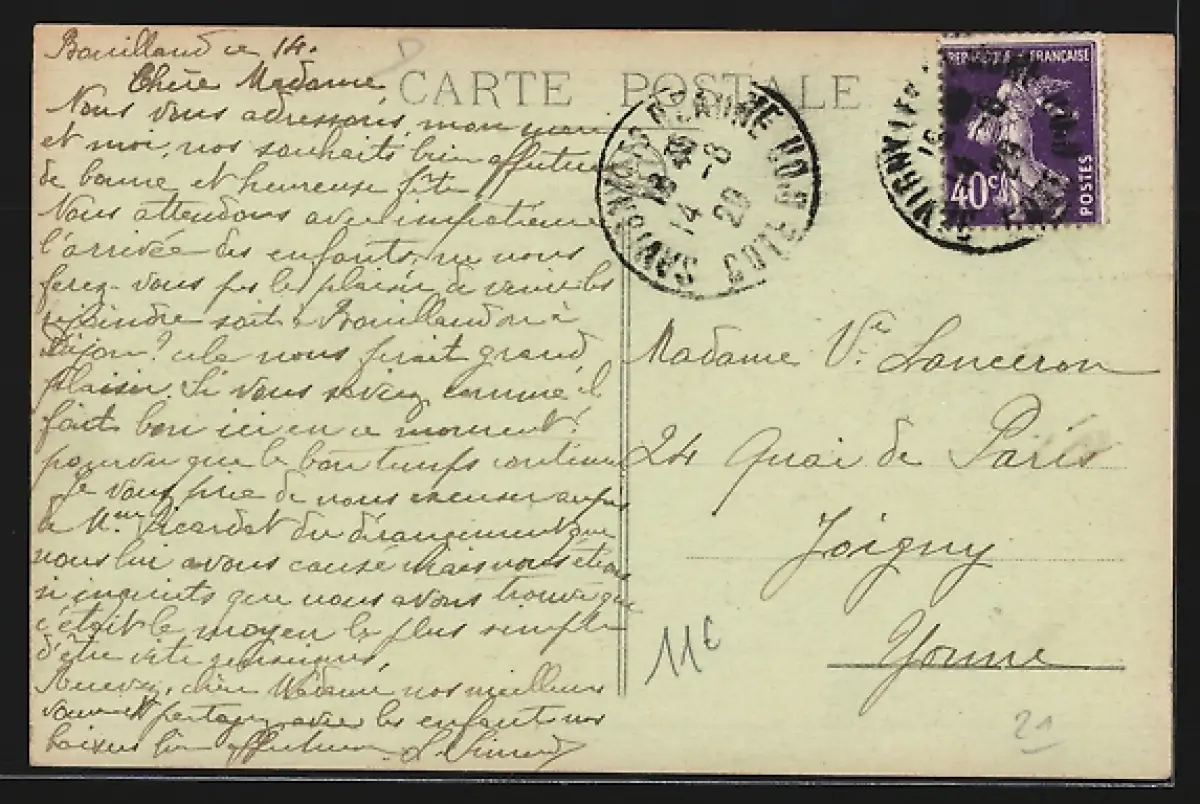 Bouilland ce 14.
Chère Madame
Nous vous adressons, mon mari
et moi, nos souhaits bien affectueux
de bonne et heureuse fête
Nous attendons avec impatience
l'arrivée des enfants, ne nous
ferez-vous pas le plaisir de venir les
rejoindre soit à Bouilland ou à
Dijon? cela nous ferait grand
plaisir. Si vous saviez comme il
fait bon ici en ce moment!
pourvu que le bon temps continue
Je vous prie de nous excuser auprès
de Mme Ricardat du dérangement que
nous lui avons causé mais nous étions
si inquiets que nous avons trouvé que
c'était le moyen le plus simple
d'être vite renseignés,
Recevez, chère Madame nos meilleurs
partagez avec les enfants nos
baisers bien affectueux
CARTE POSTALE
SAVIGNY-LES-BEAUNE
14 -8
29
COTE D'OR
REPUBLIQUE FRANÇAISE
40c
POSTES
Madame Ve Lanceron
24 Quai de Paris
Joigny
Yonne
11€
21